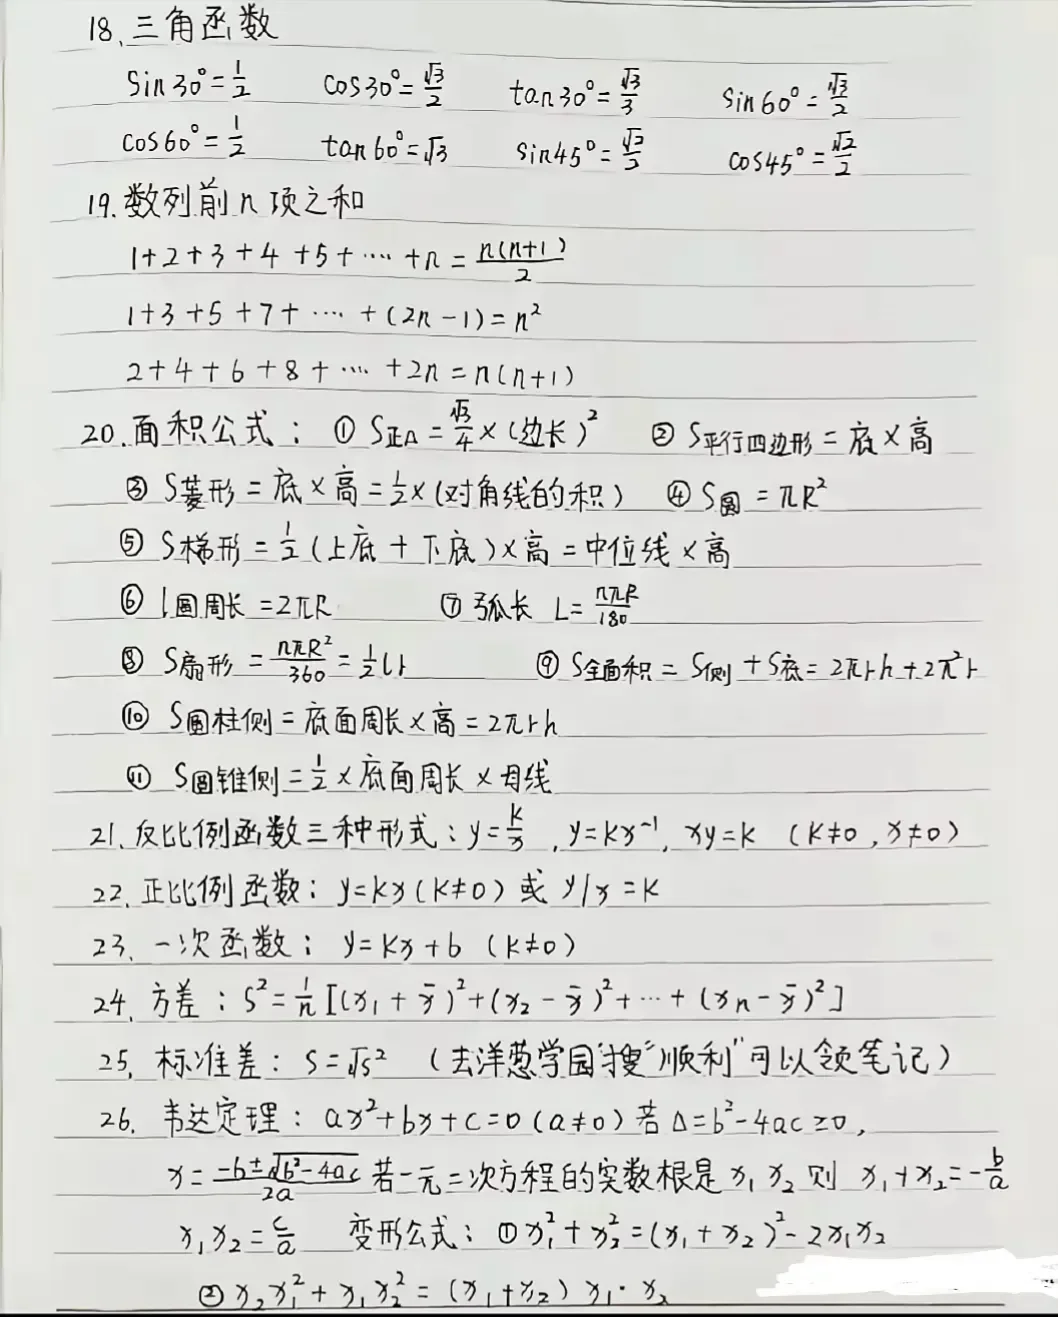 18、三角函数
sin30°=1/2 cos30°=√3/2 tan30°=√3/3 sin60°=√3/2
cos60°=1/2 tan60°=√3 sin45°=√2/2 cos45°=√2/2
19、数列前n项之和
1+2+3+4+5+……+n=n(n+1)/2
1+3+5+7+……+(2n-1)=n²
2+4+6+8+……+2n=n(n+1)
20、面积公式：① S正△=√3/4×(边长)² ② S平行四边形=底×高
③ S菱形=底×高=1/2×(对角线的积) ④ S圆=πR²
⑤ S梯形=1/2(上底+下底)×高=中位线×高
⑥ l圆周长=2πR ⑦ 弧长 L=nπR/180
⑧ S扇形=nπR²/360=1/2lr ⑨ S全面积=S侧+S底=2πrh+2π²r
⑩ S圆柱侧=底面周长×高=2πrh
⑪ S圆锥侧=1/2×底面周长×母线
21、反比例函数三种形式：y=k/x，y=kx⁻¹，xy=k (k≠0，x≠0)
22、正比例函数：y=kx(k≠0)或 y/x=k
23、一次函数：y=kx+b (k≠0)
24、方差：S²=1/n[(x₁+x̄)²+(x₂-x̄)²+…+(xn-x̄)²]
25、标准差：S=√S² (去洋葱学园“搜”顺利”可以领笔记)
26、韦达定理：ax²+bx+c=0(a≠0)若△=b²-4ac≥0，
x=-b±√b²-4ac/2a 若一元二次方程的实数根是x₁x₂则 x₁+x₂=-b/a
x₁x₂=c/a 变形公式：①x₁²+x₂²=(x₁+x₂)²-2x₁x₂
②x₂x₁²+x₁x₂²=(x₁+x₂)x₁·x₂